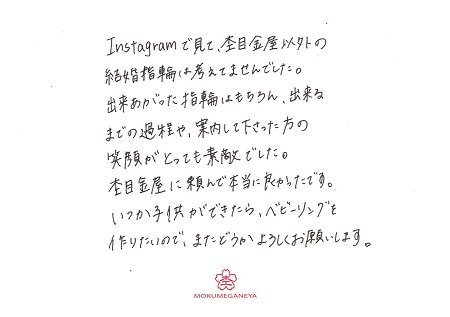 Instagramで見て、杢目金屋以外の
結婚指輪は考えてませんでした。
出来あがった指輪はもちろん、出来る
までの過程や、案内して下さった方の
笑顔がとっても素敵でした。
杢目金屋に頼んで本当に良かったです。
いつか子供ができたら、ベビーリングを
作りたいので、またどうかよろしくお願いします。
MOKUMEGANEYA